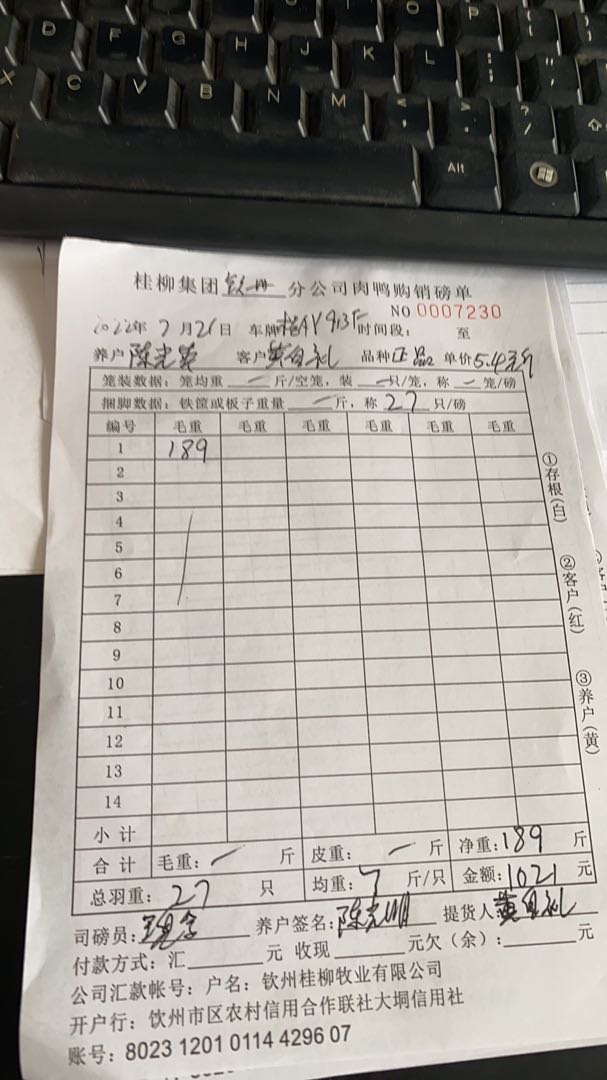 D F G H J K L : ; " '
X C V B N M < , > . ? /
Alt
桂柳集团钦州分公司肉鸭购销磅单
NO 0007230
2022年7月21日 车牌桂AY913F 时间段: 至
养户 陈光英 客户 黄自礼 品种 正品 单价5.4元/斤
笼装数据: 笼均重 一 斤/空笼, 装 一 只/笼, 称 一 笼/磅
捆脚数据: 铁筐或板子重量 一 斤, 称 27 只/磅
编号 毛重 毛重 毛重 毛重 毛重 毛重
1 189
2
3
4
5
6
7
8
9
10
11
12
13
14
小计
合计 毛重: 一 斤 皮重: 一 斤 净重: 189 斤
总羽重: 27 只 均重: 7 斤/只 金额: 1021 元
司磅员: 养户签名: 陈光明 提货人 黄自礼
付款方式: 汇 元 收现 元欠(余): 元
公司汇款帐号: 户名: 钦州桂柳牧业有限公司
开户行: 钦州市区农村信用合作联社大垌信用社
账号: 8023 1201 0114 4296 07
①存根(白)
②客户(红)
③养户(黄)